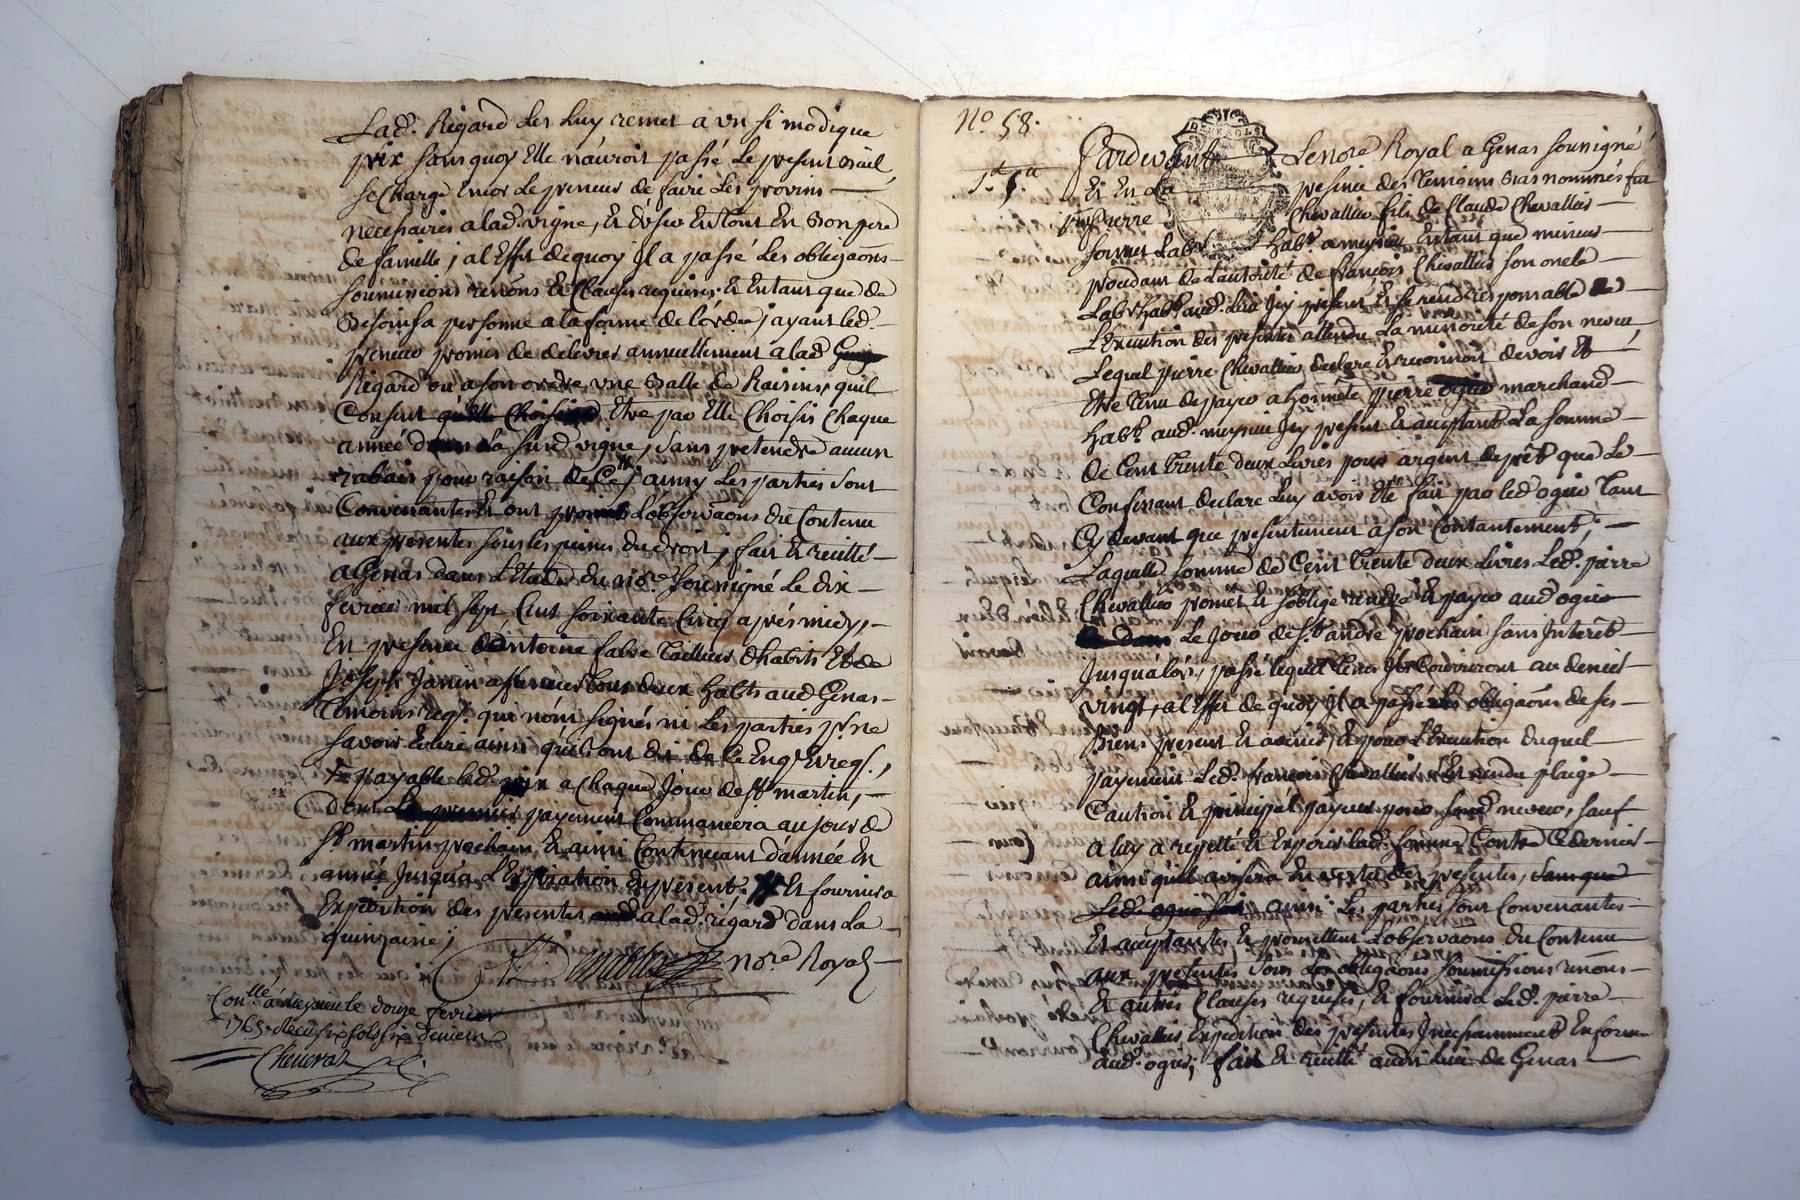 Lad. Rigard les luy remet a un si modique
prix sans quoy Elle n'auroit passé le present Bail,
se Charge Encor le preneur de faire les provins
necessaires a lad. vigne, Et d'User En tout En Bon pere
de famille, al Effet dequoy Il a passé les obligaons
soumissions renons & Clauses requises & Entant que de
Besoin sa personne a la forme de l'ordce, ayant led.
preneur promis de delivrer annuellement a lad
Rigard ou a son ordre une Balle de Raisins, quil
Consent Etre par Elle Choisis Chaque
année dans la susd. vigne, sans pretendre aucun
rabais pour raison de Ce, ainsy les parties sont
Convenantes Et ont promis l'observaons du Contenu
aux presentes sous les peines du droit, fait & recitté
a Genas dans l'Etude du nore. soussigné le dix
fevrier mil sept Cent soixante Cinq apres midy,
En presence d'antoine fabre Tailleur d'habits Et de
Joseph Janin tous deux habts aud Genas
Temoins req. qui n'ont signés ni les parties pr. ne
savoir Ecrire ainsi quils ont dit de ce Enq. & req.,
payable led. prix a Chaque Jour de st. martin,
dont payement Commancera au jour de
st. martin prochain, Et ainsi Continuant d'année En
année Jusqu'a l'Expiration du present. Et fournira
Expedition des presentes a lad. rigard dans la
quinzaine;
nore Royal
Conllé a meyzieu le douze fevrier
1765. Recu six sols six deniers
Cheuvraz
No. 58.
Pardevant Le nore Royal a Genas soussigné
Et En la presence des Temoins Bas nommés fut
pnt pierre Chevallier fils de Claude Chevallier
sonnet Labr habt. a meyzieu, Entant que mineur
procedant de l'autorité de francois Chevallier son oncle
Labr habt aud. lieu Icy present & se rend responsable de
l'Execution des presentes attendu la minorité de son neveu,
Lequel pierre Chevallier declare & reconnoit devoir &
Etre Tenu de payer a honnete pierre ogier marchand
habt. aud. meyzieu Icy present & acceptant la somme
de Cent Trente deux Livres pour argent de prêt que le
Confessant declare luy avoir Eté fait par led. ogier Tant
Cy devant que presentement a son Contantement,
Laquelle somme de Cent Trente deux Livres led. pierre
Chevallier promet & s'oblige rendre & payer aud. ogier
le Jour de st. andré prochain sans Interêt
Jusqu'alors, passé lequel Tems Ils Couriront au denier
vingt, al Effet de quoy Il a passé les obligaons de ses
Biens present & avenir, & pour l'Execution duquel
payement led. francois Chevallier s'Est rendu pleige
Caution & principal payeur pour sond. neveu, sauf
a luy a repetté & Exposer lad. somme Contre Ce dernier
ainsi quil avisera En vertu des presentes,
ainsi les parties sont Convenantes
Et acceptantes & promettent l'observaons du Contenu
aux presentes sous les obligaons soumissions renons
Et autres Clauses requises, & fournira led. pierre
Chevallier Expedition des presentes Incessamment En forme
aud. ogier, fait & recitté audit lieu de Genas